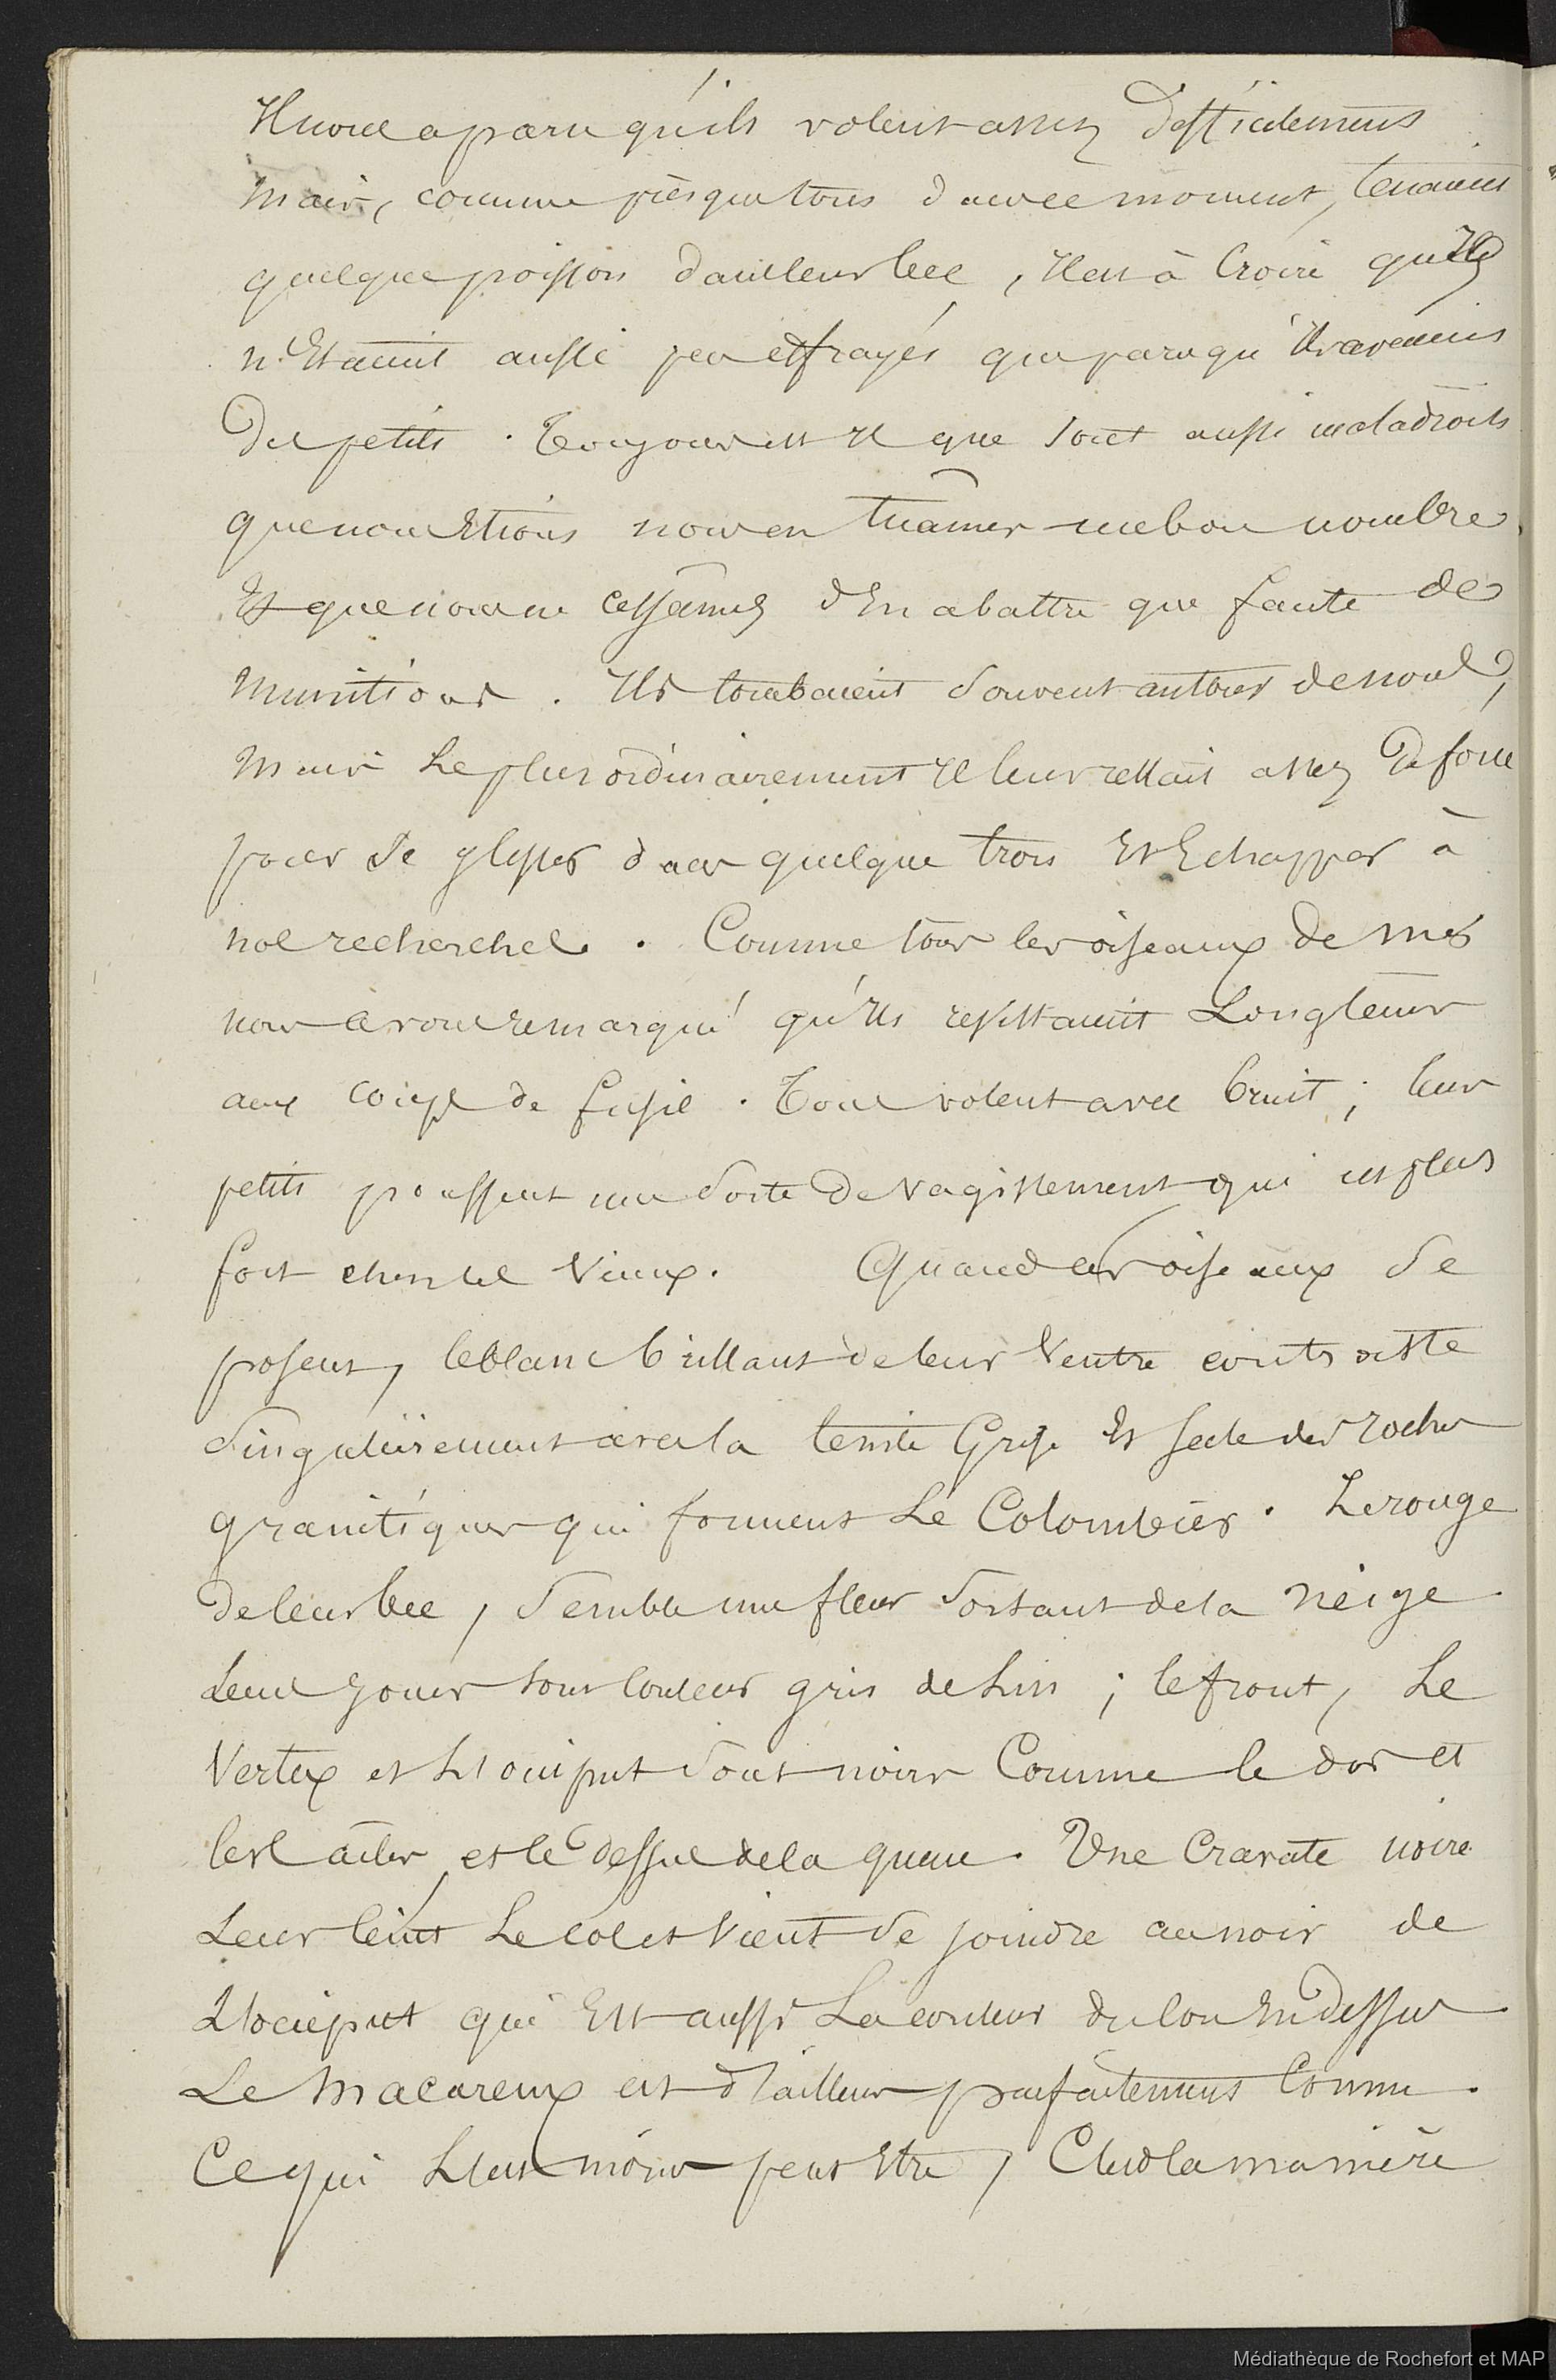 Il nous a paru qu'ils volent assez difficilement
mais, comme presque tous dans ce moment, tenaient
quelque poisson dans leur bec, il est à croire qu'ils
n'étaient aussi peu effrayés que parcequ'ils avaient
des petits. Toujours est il que tout aussi maladroits
que nous étions nous en tuâmes un bon nombre,
et que nous ne cessâmes d'en abattre que faute de
munitions. Ils tombaient souvent autour de nous,
mais le plus ordinairement il leur restait assez de force
pour se glisser dans quelque trou et échapper à
nos recherches. Comme tous les oiseaux de mer
nous avons remarqué qu'ils résistaient longtems
aux coups de fusil. Tous volent avec bruit; leurs
petits poussent une sorte de vagissement qui est plus
fort chez les vieux. Quand ces oiseaux se
posent, le blanc brillant de leur ventre contraste
singulièrement avec la teinte grise et sale des rochers
granitiques qui forment le Colombier. Le rouge
de leur bec, semble une fleur sortant de la neige
Leurs joues sont couleur gris de lin; le front, le
vertex et l'occiput sont noirs comme le dos et
les ailes et le dessus de la queue. Une cravate noire
leur ceint le col et vient se joindre au noir de
l'occiput qui est aussi la couleur du cou en dessus
Le macareux est d'ailleurs parfaitement connu.
Ce qui l'est moins peut être, c'est la manière
Médiathèque de Rochefort et MAP